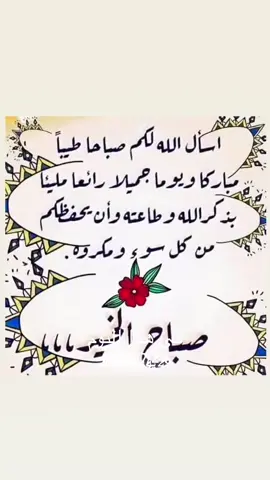 اسأل الله لكم صباحا طيباً
مباركا ويوما جميلا رائعا مليئا
بذكر الله وطاعته وأن يحفظكم
من كل سوء ومكروه.
صباح الخير